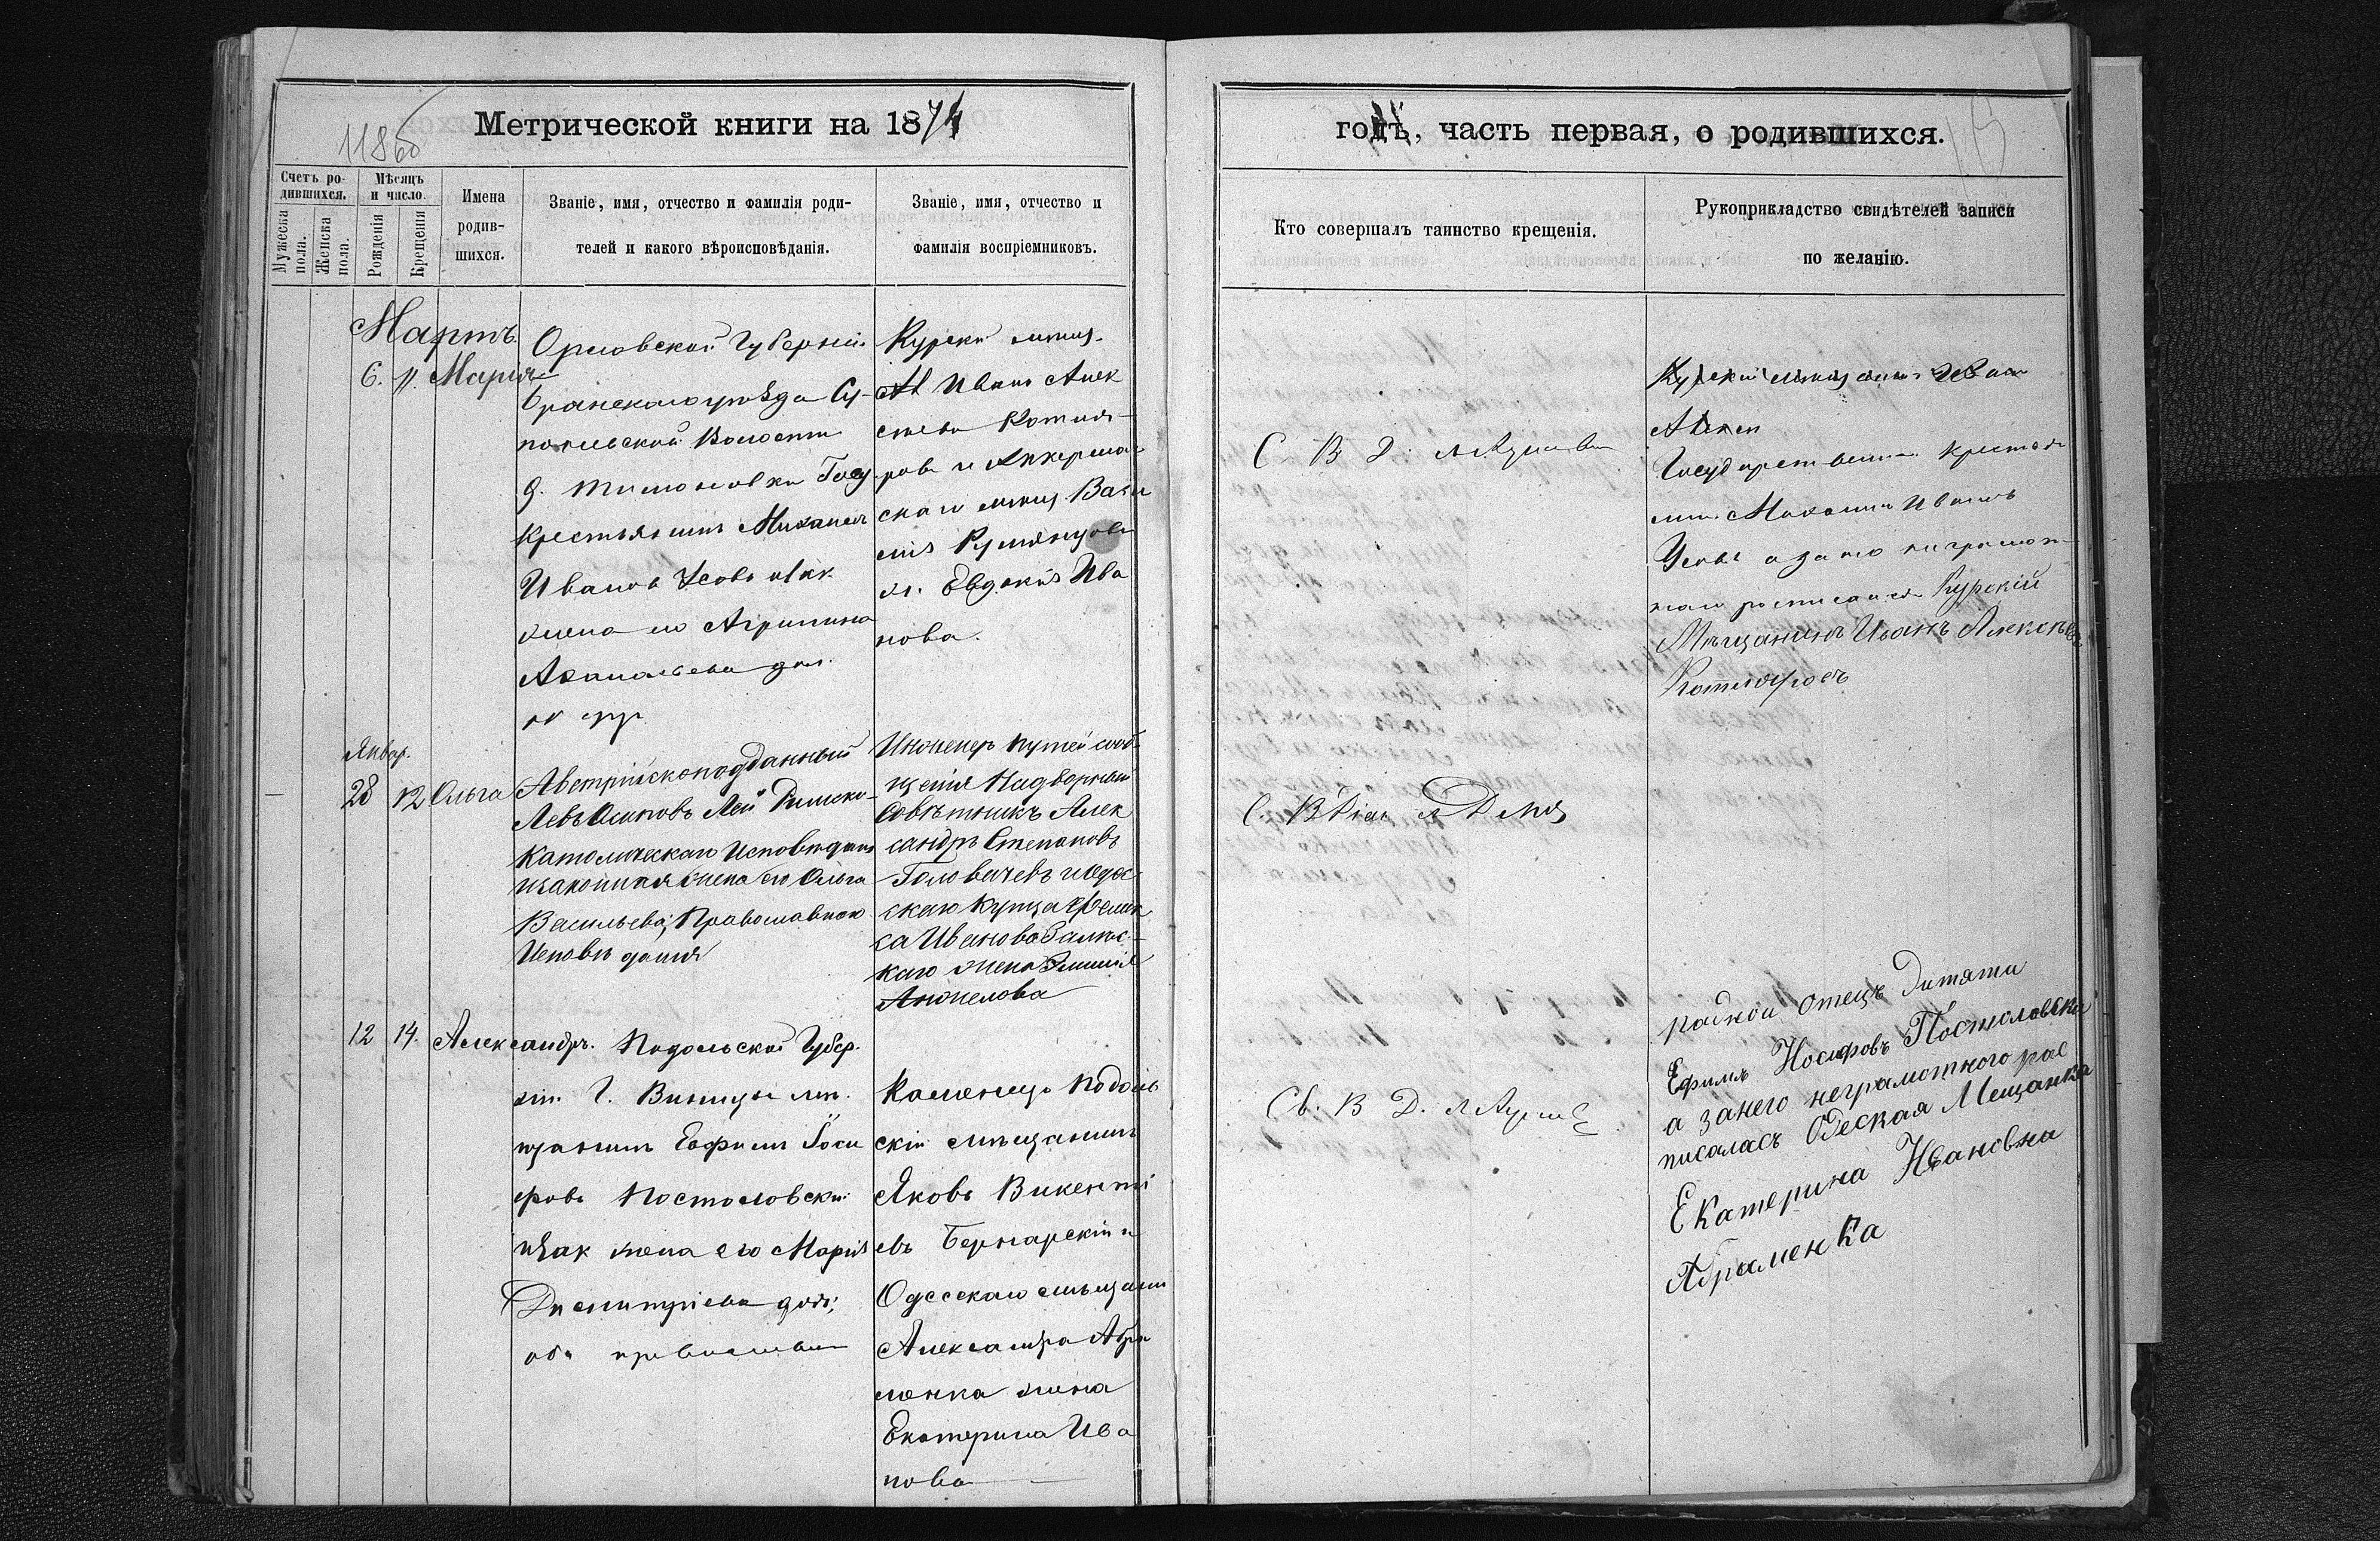 118об
Метрической книги на 1874
Счетъ ро-
дившихся.
Мѣсяцъ
и число.
Мужеска
пола.
Женска
пола.
Рожденія
Крещенія
Имена
родив-
шихся.
Званіе, имя, отчество и фамилія роди-
телей и какого вѣроисповѣданія.
Званіе, имя, отчество и
фамилія воспріемниковъ.
Мартъ
6. 11 Марія
Орловской Губерніи
Бранскаго уѣзда
Волости
д. Тимоновки Госу.
крестьянинъ Михаилъ
Иванов Усовъ
жена его Агрипина
Курскій мѣщ.
Иванъ Алек
Котля-
ровъ и Аккерман
скаго мѣщ. Васи
лія Румянцова
ж. Евдокія Ива
нова.
Январ.
28 12 Ольга
Австрійскоподданный
Левъ Осиповъ Лей Римско-
Католическаго Исповѣданія
изаконная жена его Ольга
Васильева, Православнаго
Исповѣданія
Инженеръ путей сооб
щенія Надворный
Совѣтникъ Алек
сандръ Степановъ
Головачевъ иодес
скаго купца Фелик
са Иванова
каго жена Эмилія
Анжелова
12 14. Александръ.
Подольской Губер.
ніи Г. Винницы мѣ.
щанинъ Евфимъ Іоси
фовъ Постоловскій
изак жена его Марія
Димитріева
оба православн
Каменецъ Подоль
скій мѣщанинъ
Яковъ Викенті
евъ Бернарскій и
Одесскаго мѣщани
Александра Абра
менка жена
Екатерина Ива
нова
годъ, часть первая, о родившихся.
Кто совершалъ таинство крещенія.
Рукоприкладство свидѣтелей записи
по желанію.
С В Д.
Курскій мѣщанинъ Иван
Алек
Государственный крестья
нинъ Михаилъ Ивановъ
Усовъ а за него неграмот
наго росписался Курскій
Мѣщанинъ Иванъ Алексѣев
Котляровъ
С. В
Св. В Д.
Родной Отецъ Дитяти
Ефимъ Иосифовъ Постоловски
а занего неграмотного рас
писалась Одеская Мещанка
Екатерина Ивановна
Абраменка